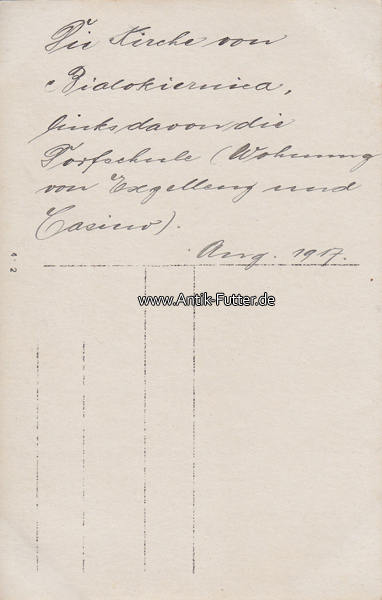 Die Kirche von
Bialokiernica,
links davon die
Dorfschule (Wohnung
von Exzellenz und
Casino).
Aug. 1917.
4 - 2
www.Antik-Futter.de